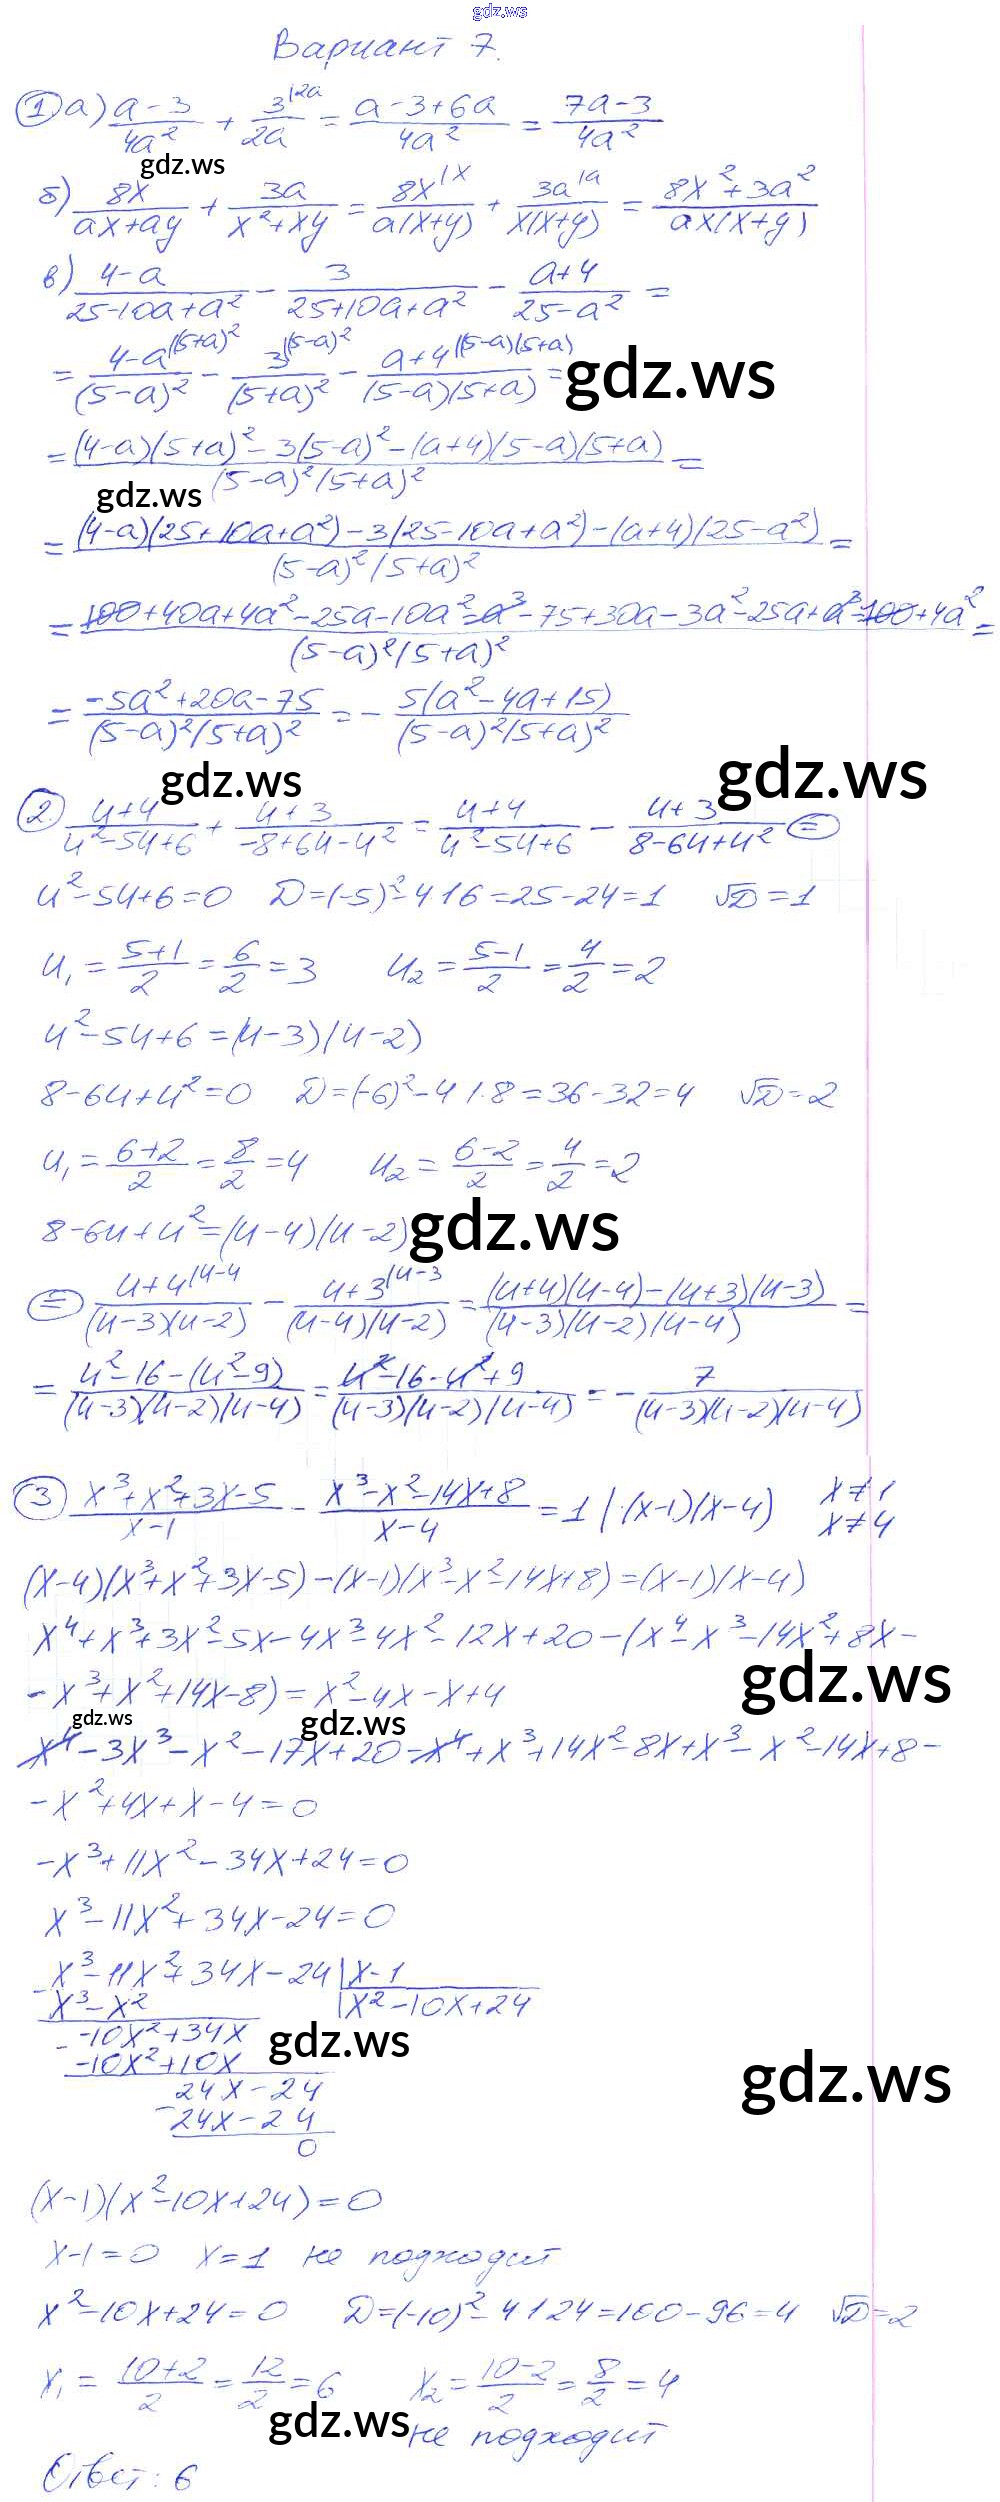 gdz.ws
Вариант 7.
① а) (a-3)/(4a²) + 3^{|2a}/(2a) = (a-3+6a)/(4a²) = (7a-3)/(4a²)
gdz.ws
б) 8x/(ax+ay) + 3a/(x²+xy) = 8x^{|x}/(a(x+y)) + 3a^{|a}/(x(x+y)) = (8x²+3a²)/(ax(x+y))
в) (4-a)/(25-10a+a²) - 3/(25+10a+a²) - (a+4)/(25-a²) =
= (4-a)^{|(5+a)²}/(5-a)² - 3^{|(5-a)²}/(5+a)² - (a+4)^{|(5-a)(5+a)}/((5-a)(5+a)) =
gdz.ws
= ((4-a)(5+a)²-3(5-a)²-(a+4)(5-a)(5+a))/((5-a)²(5+a)²) =
gdz.ws
= ((4-a)(25+10a+a²)-3(25-10a+a²)-(a+4)(25-a²))/((5-a)²(5+a)²) =
= (100+40a+4a²-25a-10a²-a³-75+30a-3a²-25a+a³-100+4a²)/((5-a)²(5+a)²) =
= (-5a²+20a-75)/((5-a)²(5+a)²) = - 5(a²-4a+15)/((5-a)²(5+a)²)
gdz.ws
gdz.ws
②. (u+4)/(u²-5u+6) + (u+3)/(-8+6u-u²) = (u+4)/(u²-5u+6) - (u+3)/(8-6u+u²) ⊜
u²-5u+6=0 D=(-5)²-4·1·6=25-24=1 √D=1
u₁ = (5+1)/2 = 6/2 = 3 u₂ = (5-1)/2 = 4/2 = 2
u²-5u+6=(u-3)(u-2)
8-6u+u²=0 D=(-6)²-4·1·8=36-32=4 √D=2
u₁ = (6+2)/2 = 8/2 = 4 u₂ = (6-2)/2 = 4/2 = 2
8-6u+u²=(u-4)(u-2)
gdz.ws
⊜ (u+4)^{|u-4}/((u-3)(u-2)) - (u+3)^{|u-3}/((u-4)(u-2)) = ((u+4)(u-4)-(u+3)(u-3))/((u-3)(u-2)(u-4)) =
= (u²-16-(u²-9))/((u-3)(u-2)(u-4)) = (u²-16-u²+9)/((u-3)(u-2)(u-4)) = - 7/((u-3)(u-2)(u-4))
③ (x³+x²+3x-5)/(x-1) - (x³-x²-14x+8)/(x-4) = 1 |·(x-1)(x-4) x≠1
x≠4
(x-4)(x³+x²+3x-5)-(x-1)(x³-x²-14x+8)=(x-1)(x-4)
x⁴+x³+3x²-5x-4x³-4x²-12x+20-(x⁴-x³-14x²+8x-
-x³+x²+14x-8)=x²-4x-x+4
gdz.ws
gdz.ws
gdz.ws
x⁴-3x³-x²-17x+20-x⁴+x³+14x²-8x+x³-x²-14x+8-
-x²+4x+x-4=0
-x³+11x²-34x+24=0
x³-11x²+34x-24=0
x³-11x²+34x-24 | x-1
x³-x² | x²-10x+24
-10x²+34x
-10x²+10x
gdz.ws
24x-24
24x-24
0
gdz.ws
(x-1)(x²-10x+24)=0
x-1=0 x=1 не подходит
x²-10x+24=0 D=(-10)²-4·1·24=100-96=4 √D=2
x₁ = (10+2)/2 = 12/2 = 6 x₂ = (10-2)/2 = 8/2 = 4
gdz.ws
не подходит
Ответ: 6